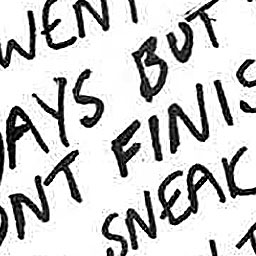 WENT
DAYS BUT
ONT FINIS
SNEAK